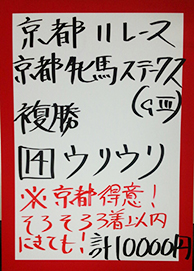 京都11レース
京都牝馬ステークス
(GⅢ)
複勝
14 ウリウリ
※京都得意！
そろそろ3着以内
にきても！ 計10000円